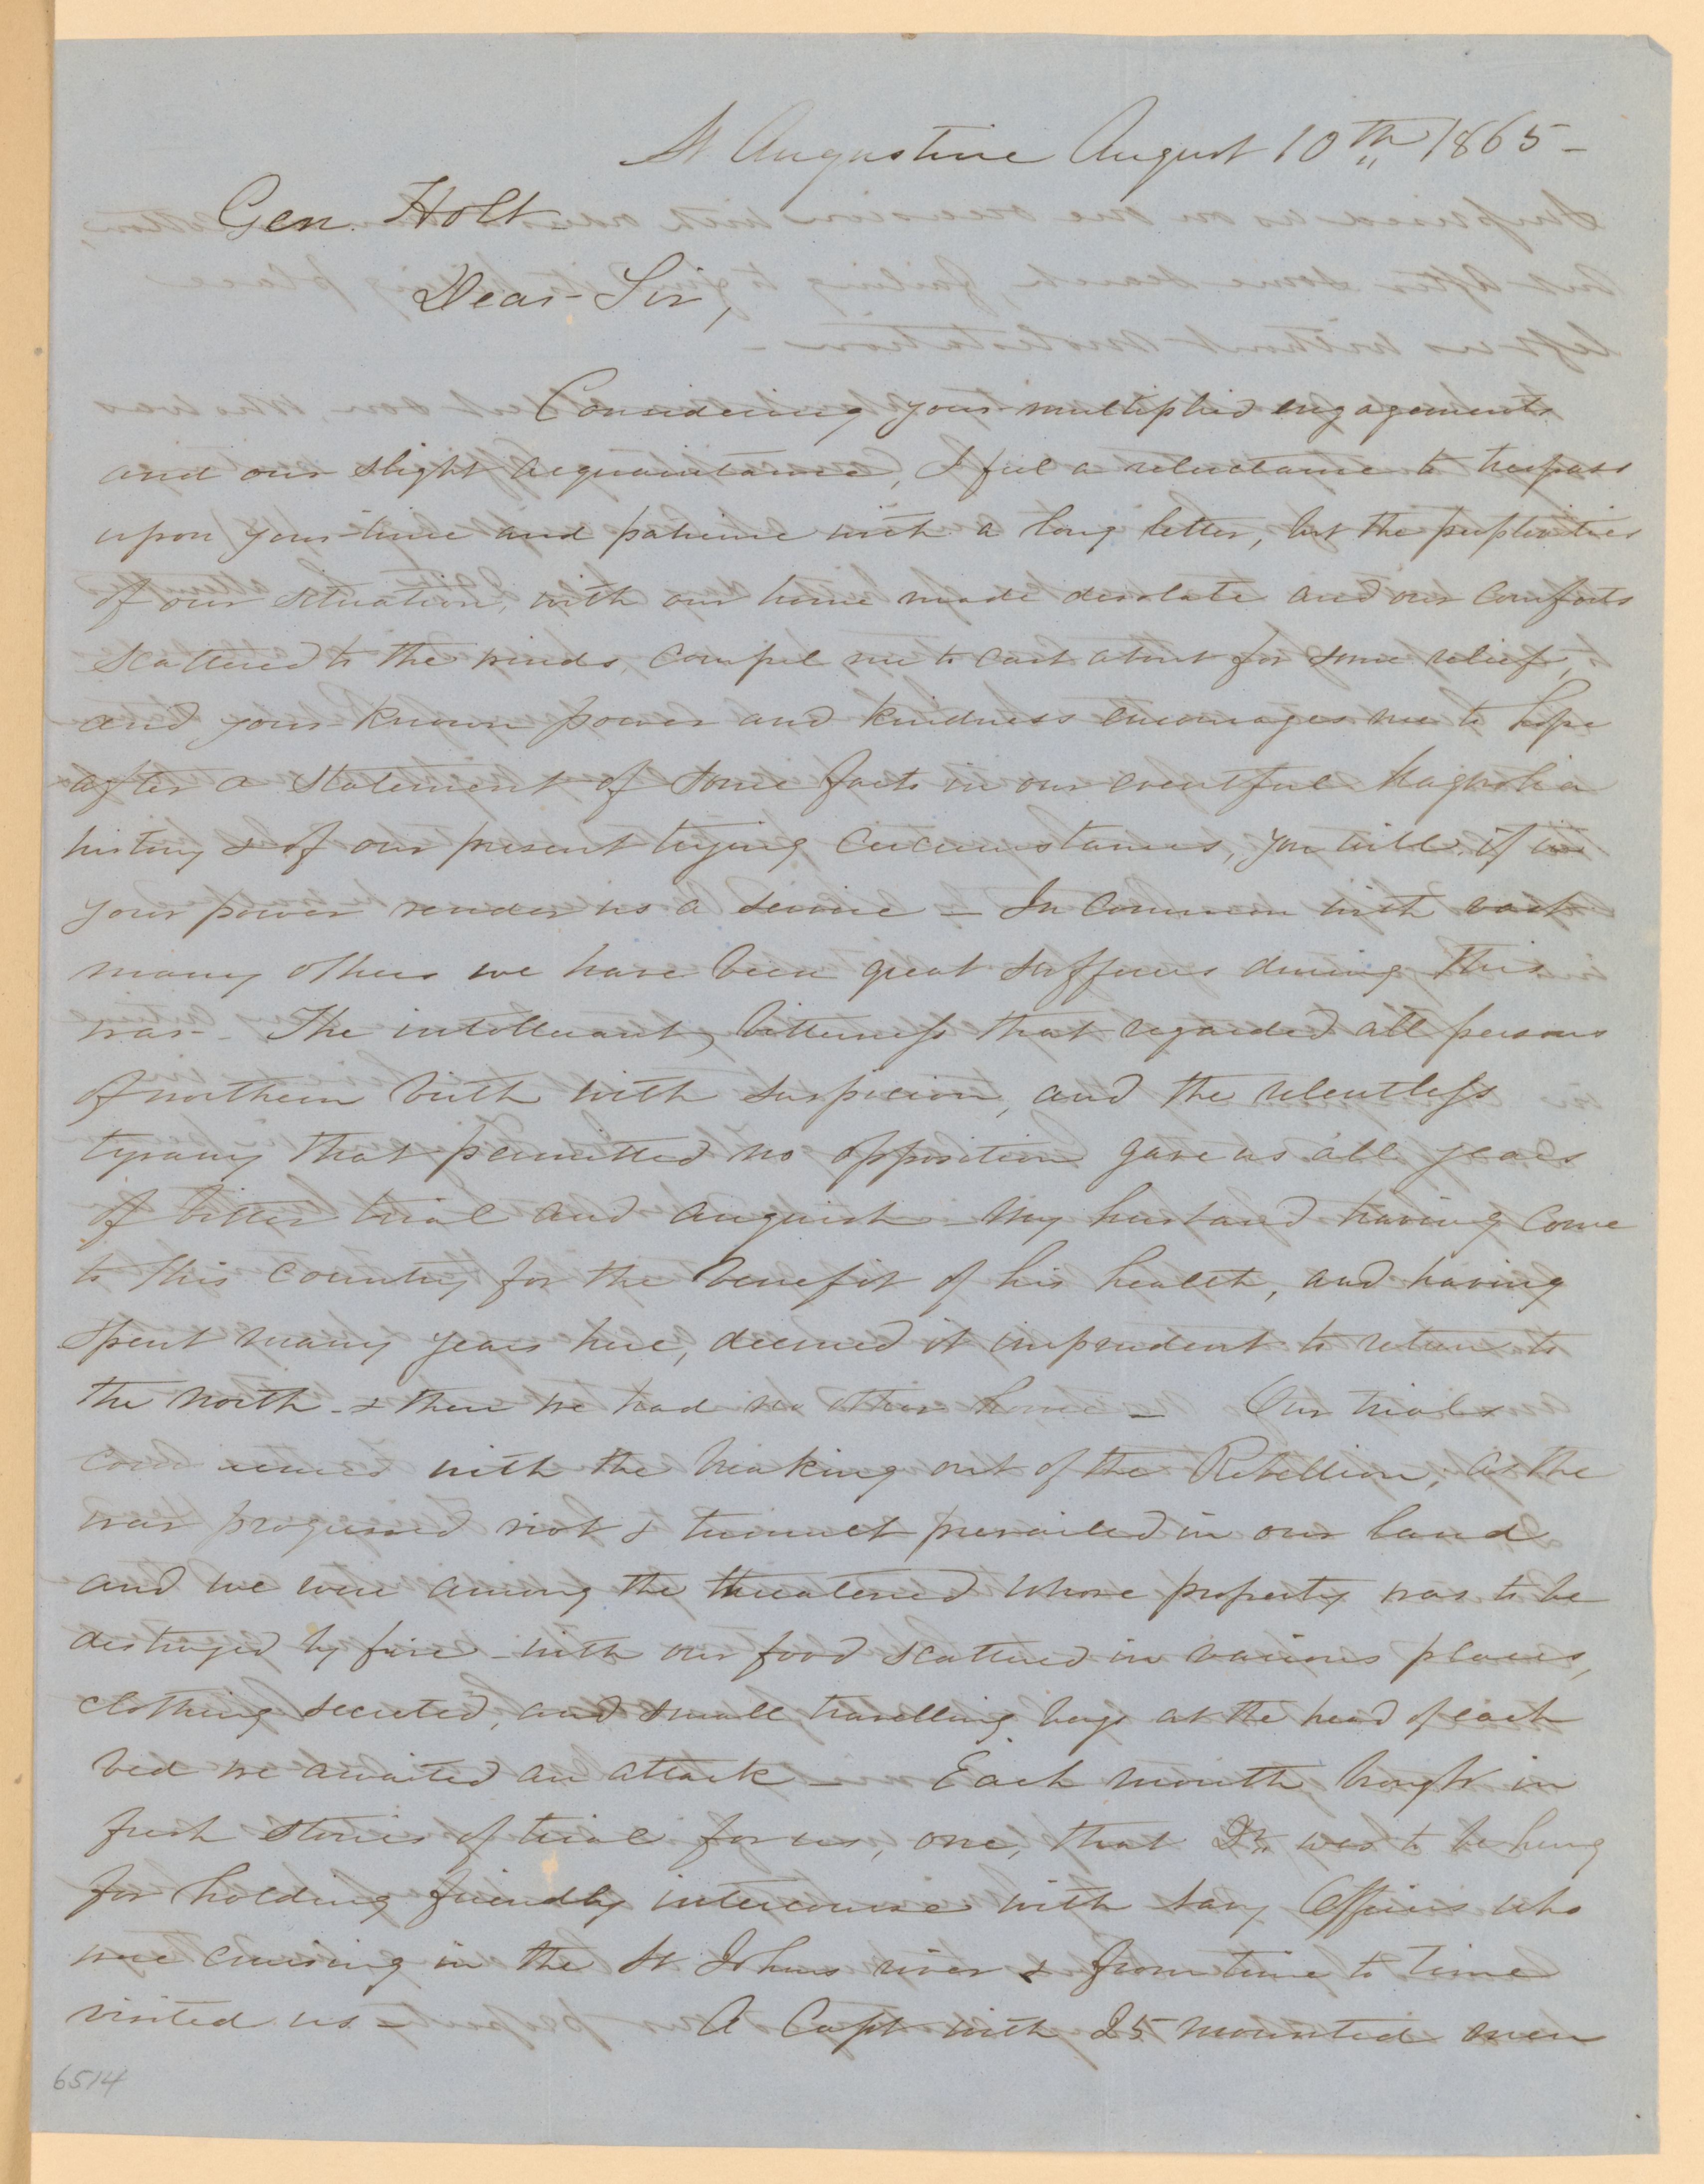 St Augustine August 10th 1865 -
Gen. Holt
Dear Sir,
Considering your multiplied engagements
and our slight acquaintance, I feel a reluctance to trespass
upon your time and patience with a long letter, but the perplexities
of our situation, with our home made desolate and our comforts
scattered to the winds, compel me to cast about for some relief,
and your known power and kindness encourages me to hope
after a statement of some facts in our eventful Magnolia
history & of our present trying circumstances, you will, if in
your power render us a service - In common with vast
many others we have been great sufferers during this
war - The intolluant bitterness that regarded all persons
of northern birth with suspicion, and the relentless
tyrany that permitted no opposition gave us all years
of bitter trial and anguish - My husband having come
to this country for the benefit of his health, and having
spent many years here, deemed it imprudent to return to
the north - & then we had no other home - Our trials
commenced with the breaking out of the Rebellion, as the
war progressed riot & tumult prevailed in our land
and we were among the threatened whose property was to be
destroyed by fire - with our food scattered in various places,
clothing secreted, and small travelling bags at the head of each
bed we awaited an attack - Each month brought in
fresh stories of trial for us, one, that Dr. was to be hung
for holding friendly intercourse with Navy Officers who
were cruising in the St Johns river & from time to time
visited us - A Capt with 25 mounted men
6514